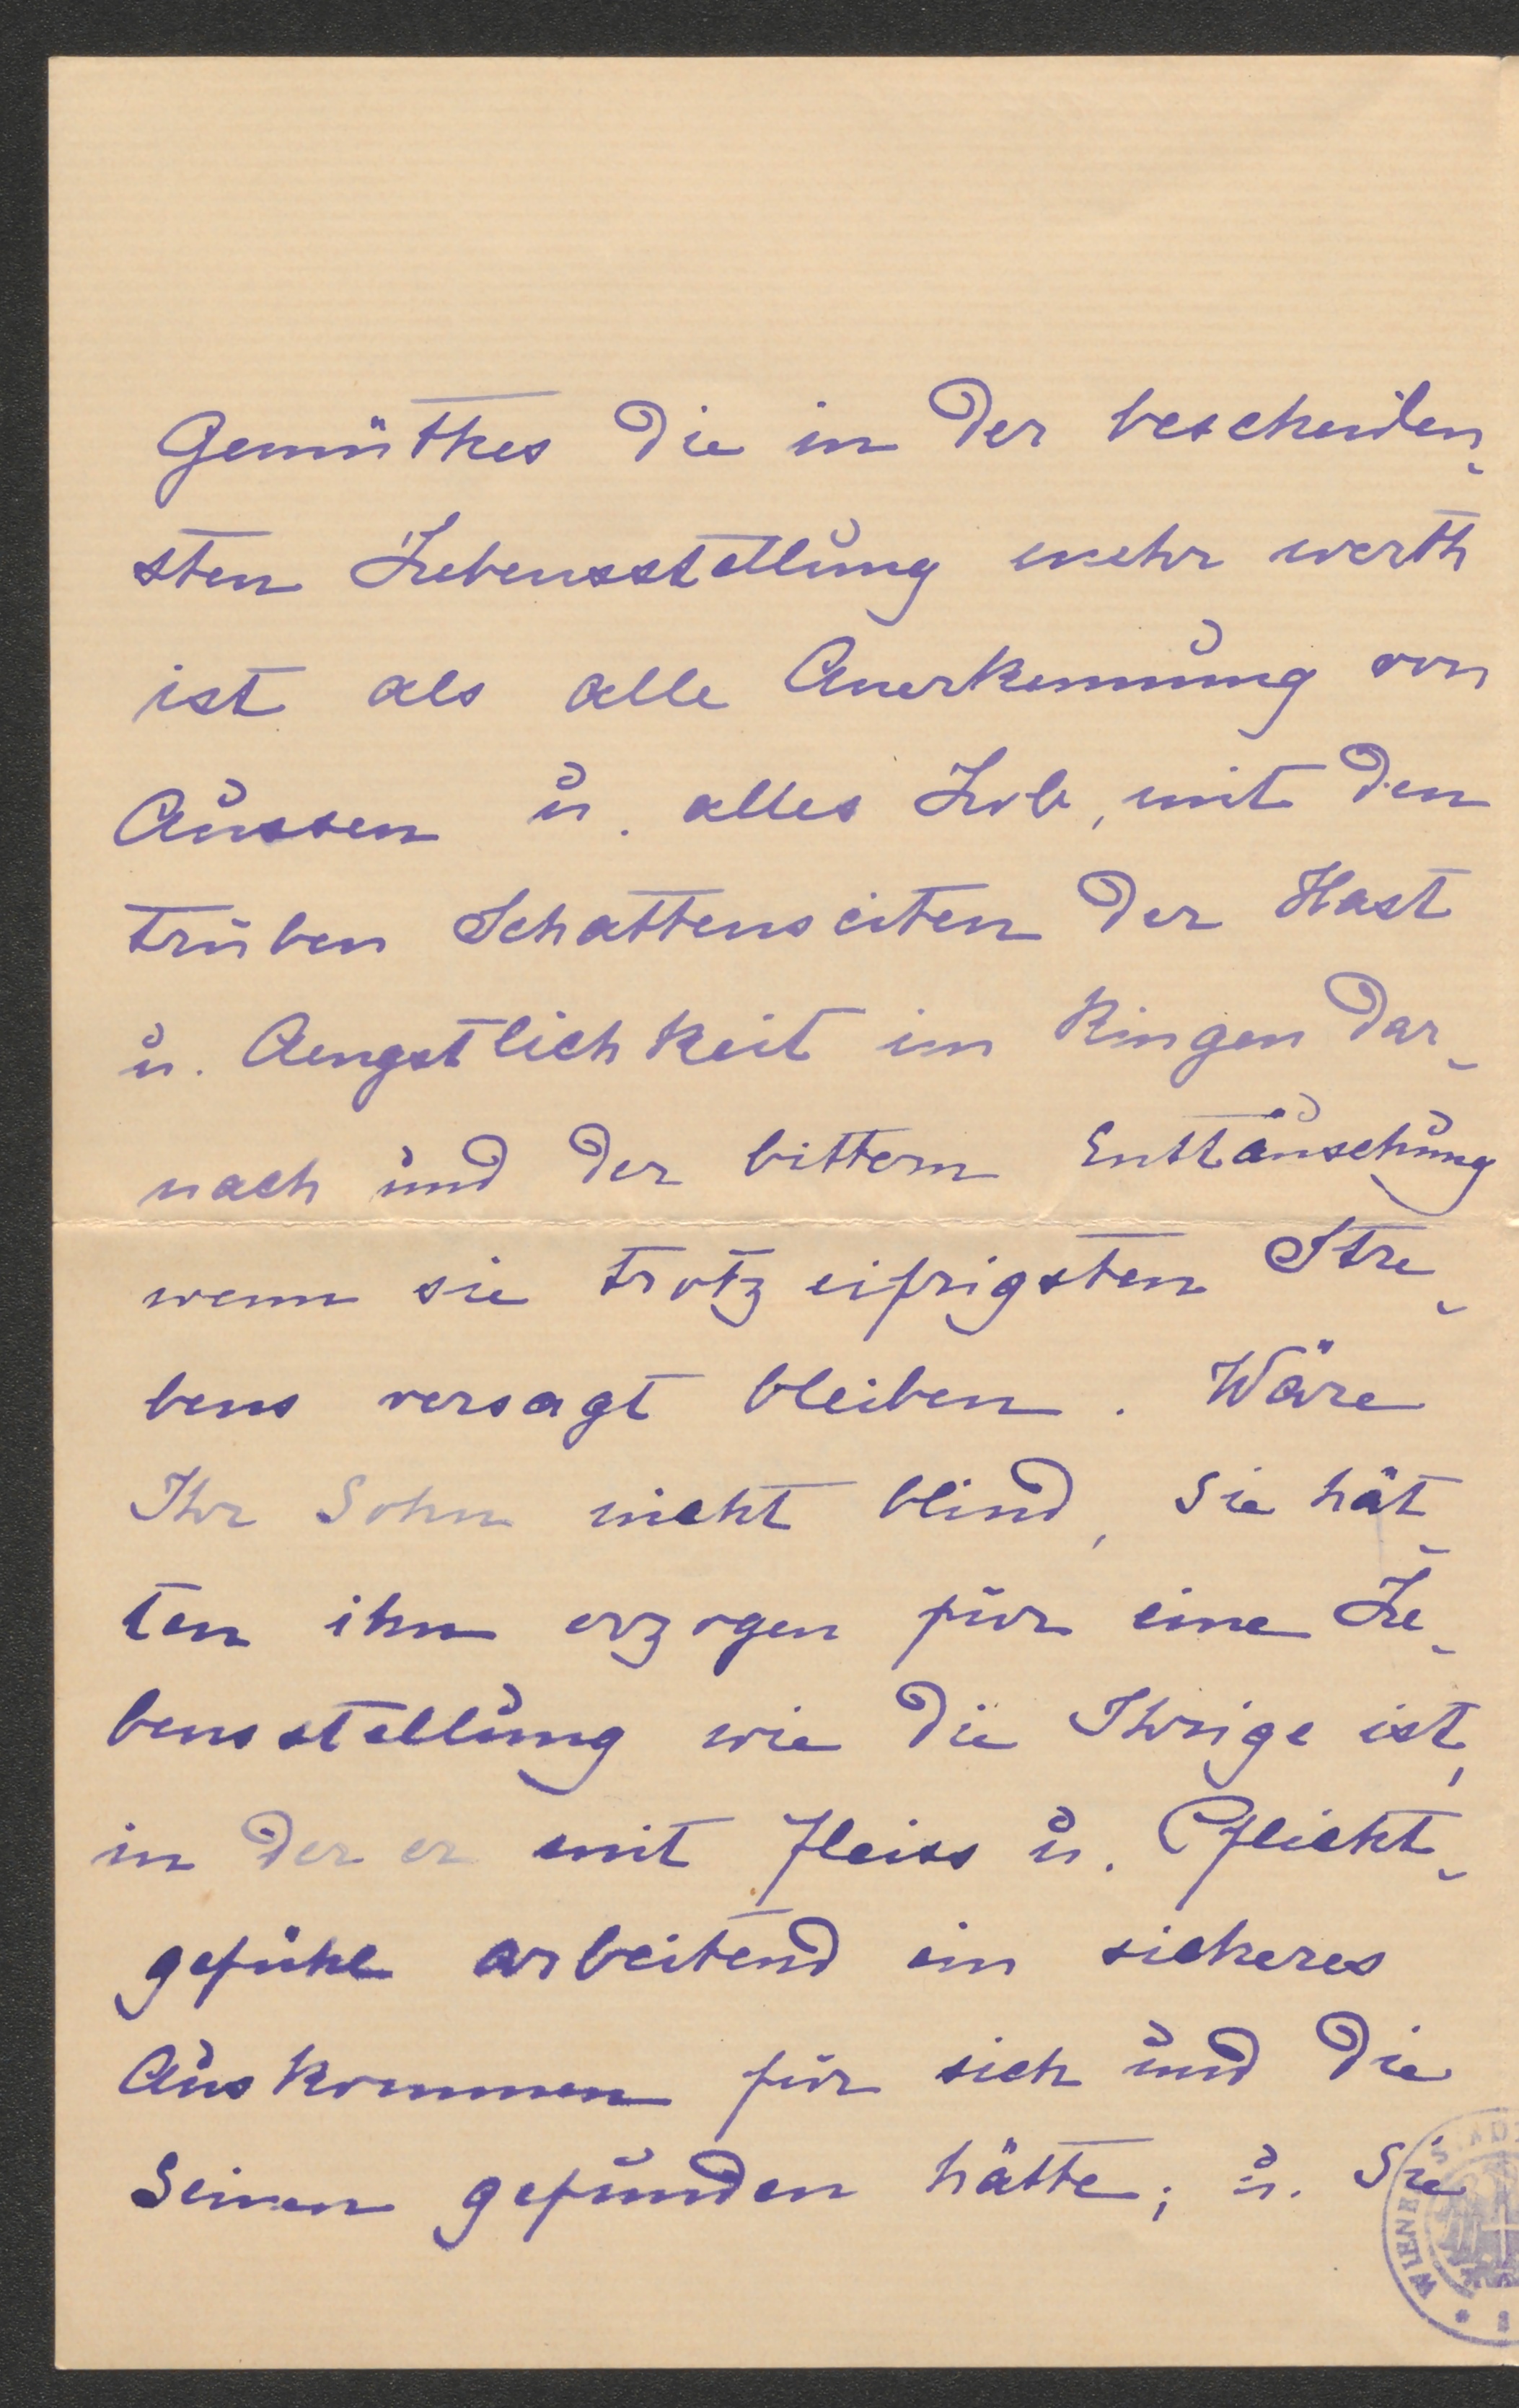 Gemüthes die in der bescheiden-
sten Lebensstellung mehr werth
ist als alle Anerkennung von
Aussen u. alles Lob, mit den
trüben Schattenseiten der Hast
u. Aengstlichkeit im Ringen dar-
nach und der bittern Enttäuschung
wenn sie trotz eifrigsten Stre-
bens versagt bleiben. Wäre
Ihr Sohn nicht blind, Sie hät-
ten ihn erzogen für eine Le-
bensstellung wie die Ihrige ist,
in der er mit Fleiss u. Pflicht-
gefühl arbeitend ein sicheres
Auskommen für sich und die
Seinen gefunden hätte; u. Sie
WIENE